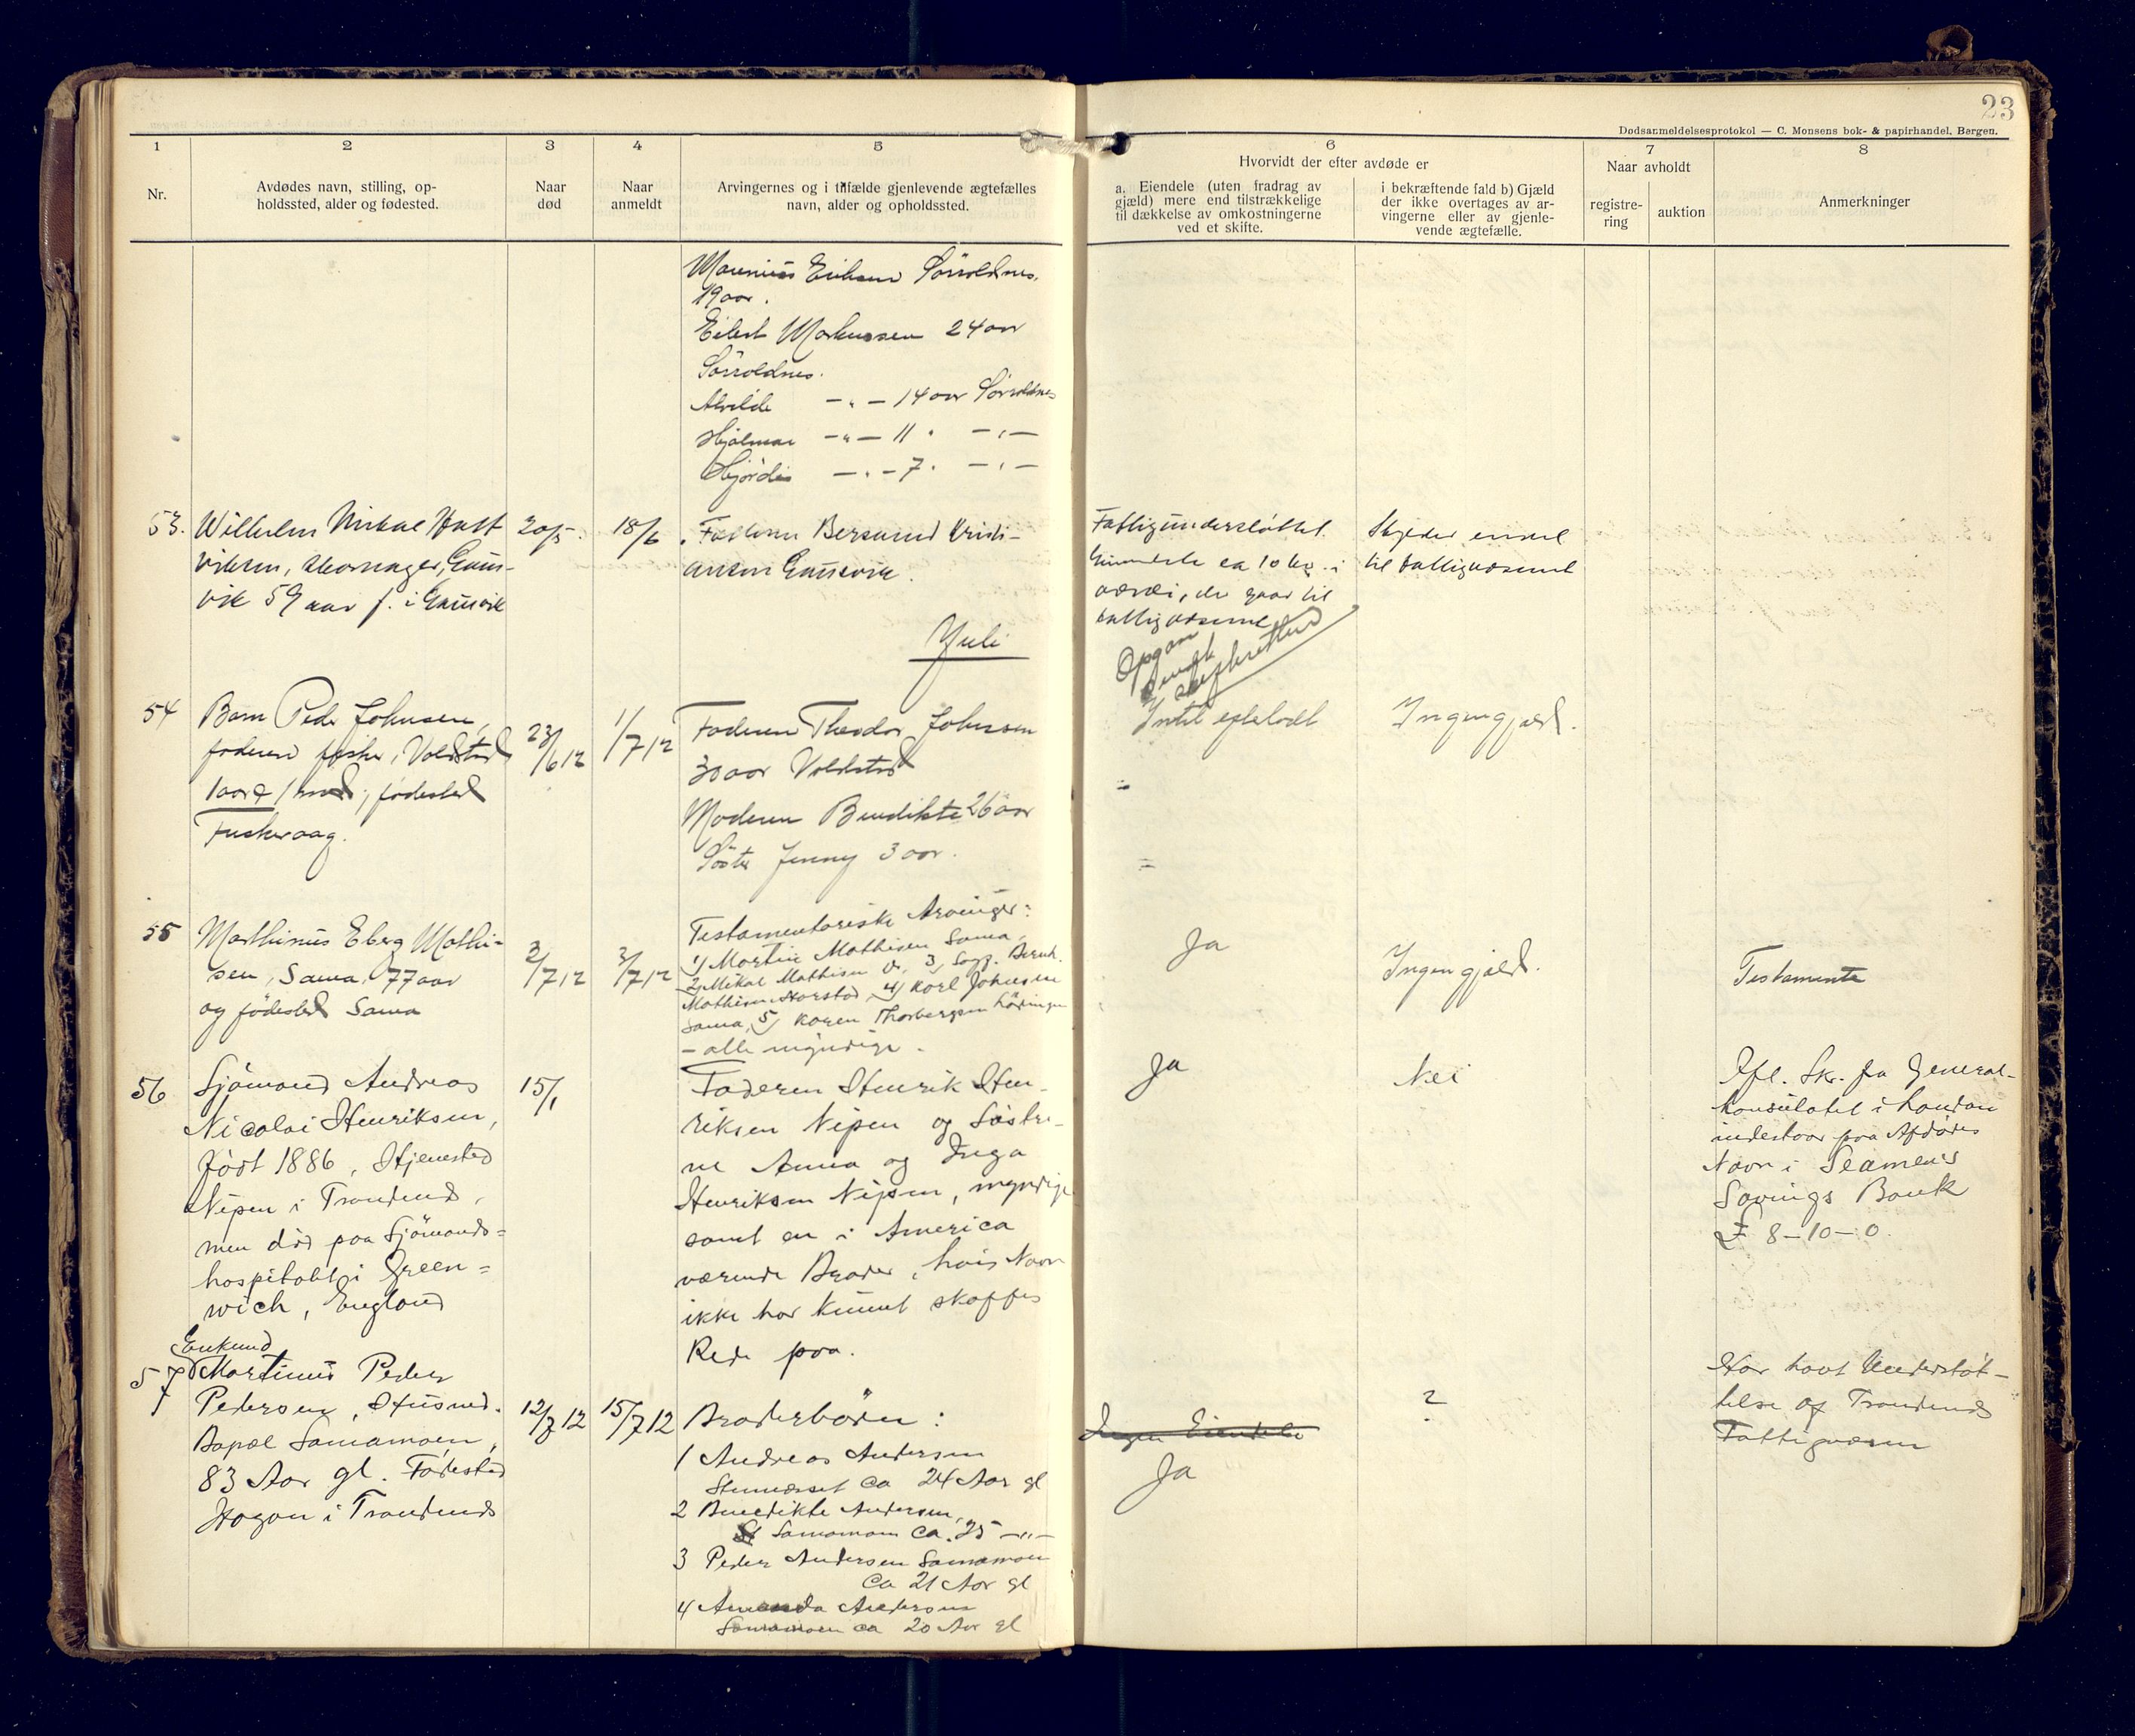 23
Dødsanmeldelsesprotokol — C. Monsens bok- & papirhandel, Bergen.
1
Nr.
2
Avdødes navn, stilling, op-
holdssted, alder og fødested.
3
Naar
død
4
Naar
anmeldt
5
Arvingernes og i tilfælde gjenlevende ægtefælles
navn, alder og opholdssted.
6
Hvorvidt der efter avdøde er
a. Eiendele (uten fradrag av
gjæld) mere end tilstrækkelige
til dækkelse av omkostningerne
ved et skifte.
i bekræftende fald b) Gjæld
der ikke overtages av ar-
vingerne eller av gjenle-
vende ægtefælle.
7
Naar avholdt
registre-
ring
auktion
8
Anmerkninger
19 aar.
Markussen 24 aar
Sörroldnes.
Alvilde — „ — 14 aar Sörroldnes
Hjalmar — „ — 11 " — „ —
Hjördis — „ — 7 " — „ —
53.
Wilhelm Mikal
Gaus-
vik 59 aar f. i Gausvik
20/5.
18/6
Bersvend Kristi-
ansen Gausvik.
Fattigunderstøttet.
ca 10 kr. i
værdi, der gaar til
fattigvæsenet
til fattigvæsenet
Opgave
sendt
Juli
54
Barn Peder Johnsen,
faderen fisker, Voldstad
1 aar & 1 mnd; fødested
23/6 12
1/7 12
Faderen Theodor Johnsen
30 aar Voldstad
Moderen Bendikte 26 aar
Söster Jenny 3 aar.
Intet efterladt
Ingen gjæld.
55
Marthinus Eberg Mathi-
sen, Sama 77 aar
og fødested Sama
2/7 12
3/7 12
Testamentariske Arvinger:
1) Martin Mathisen Sama,
2) Mikal Mathisen
4) Karl Johnsen
Sama, 5) Karen Thorbergsen
— alle myndige.
Ja
Ingen gjæld.
Testamente
56
Sjömand Andreas
Nicolai Henriksen,
født 1886, Hjemsted
Nipen i Trondenes,
men död paa Sjömands=
hospitalet i Green=
wich, England
15/1
Faderen Henrik Hen-
riksen Nipen og Söstre-
ne Anna og Inga
Henriksen Nipen, myndige
samt en i America
værende Broder, hvis Navn
ikke har kunnet skaffes
Rede paa.
Ja
Nei
Ifl. Skr. fra General-
konsulatet i London
indestaar paa Afdödes
Navn i Seamens
Savings Bank
£ 8—10—0.
57
Enkemd
Martinus Peder
Pedersen, Husmd.
Samamoen,
83 Aar gl. Födested
Hagan i Trondenes
12/7 12
15/7 12
Broderbörn:
1 Andreas Andersen
ca 24 Aar gl
2 Benedikte Andersen,
Samamoen ca. 25 — „ —
3 Peder Andersen Samamoen
ca 21 Aar gl
4 Amanda Andersen
Samamoen ca 20 Aar gl
Ingen Eiendele
Ja
?
Har havt Understöt-
telse af Trondenes
Fattigvæsen